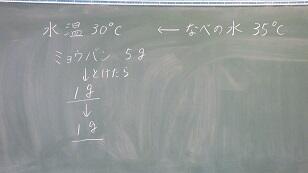 水温 30℃ ← なべの水 35℃
ミョウバン 5g
↓とけたら
1g
↓
1g